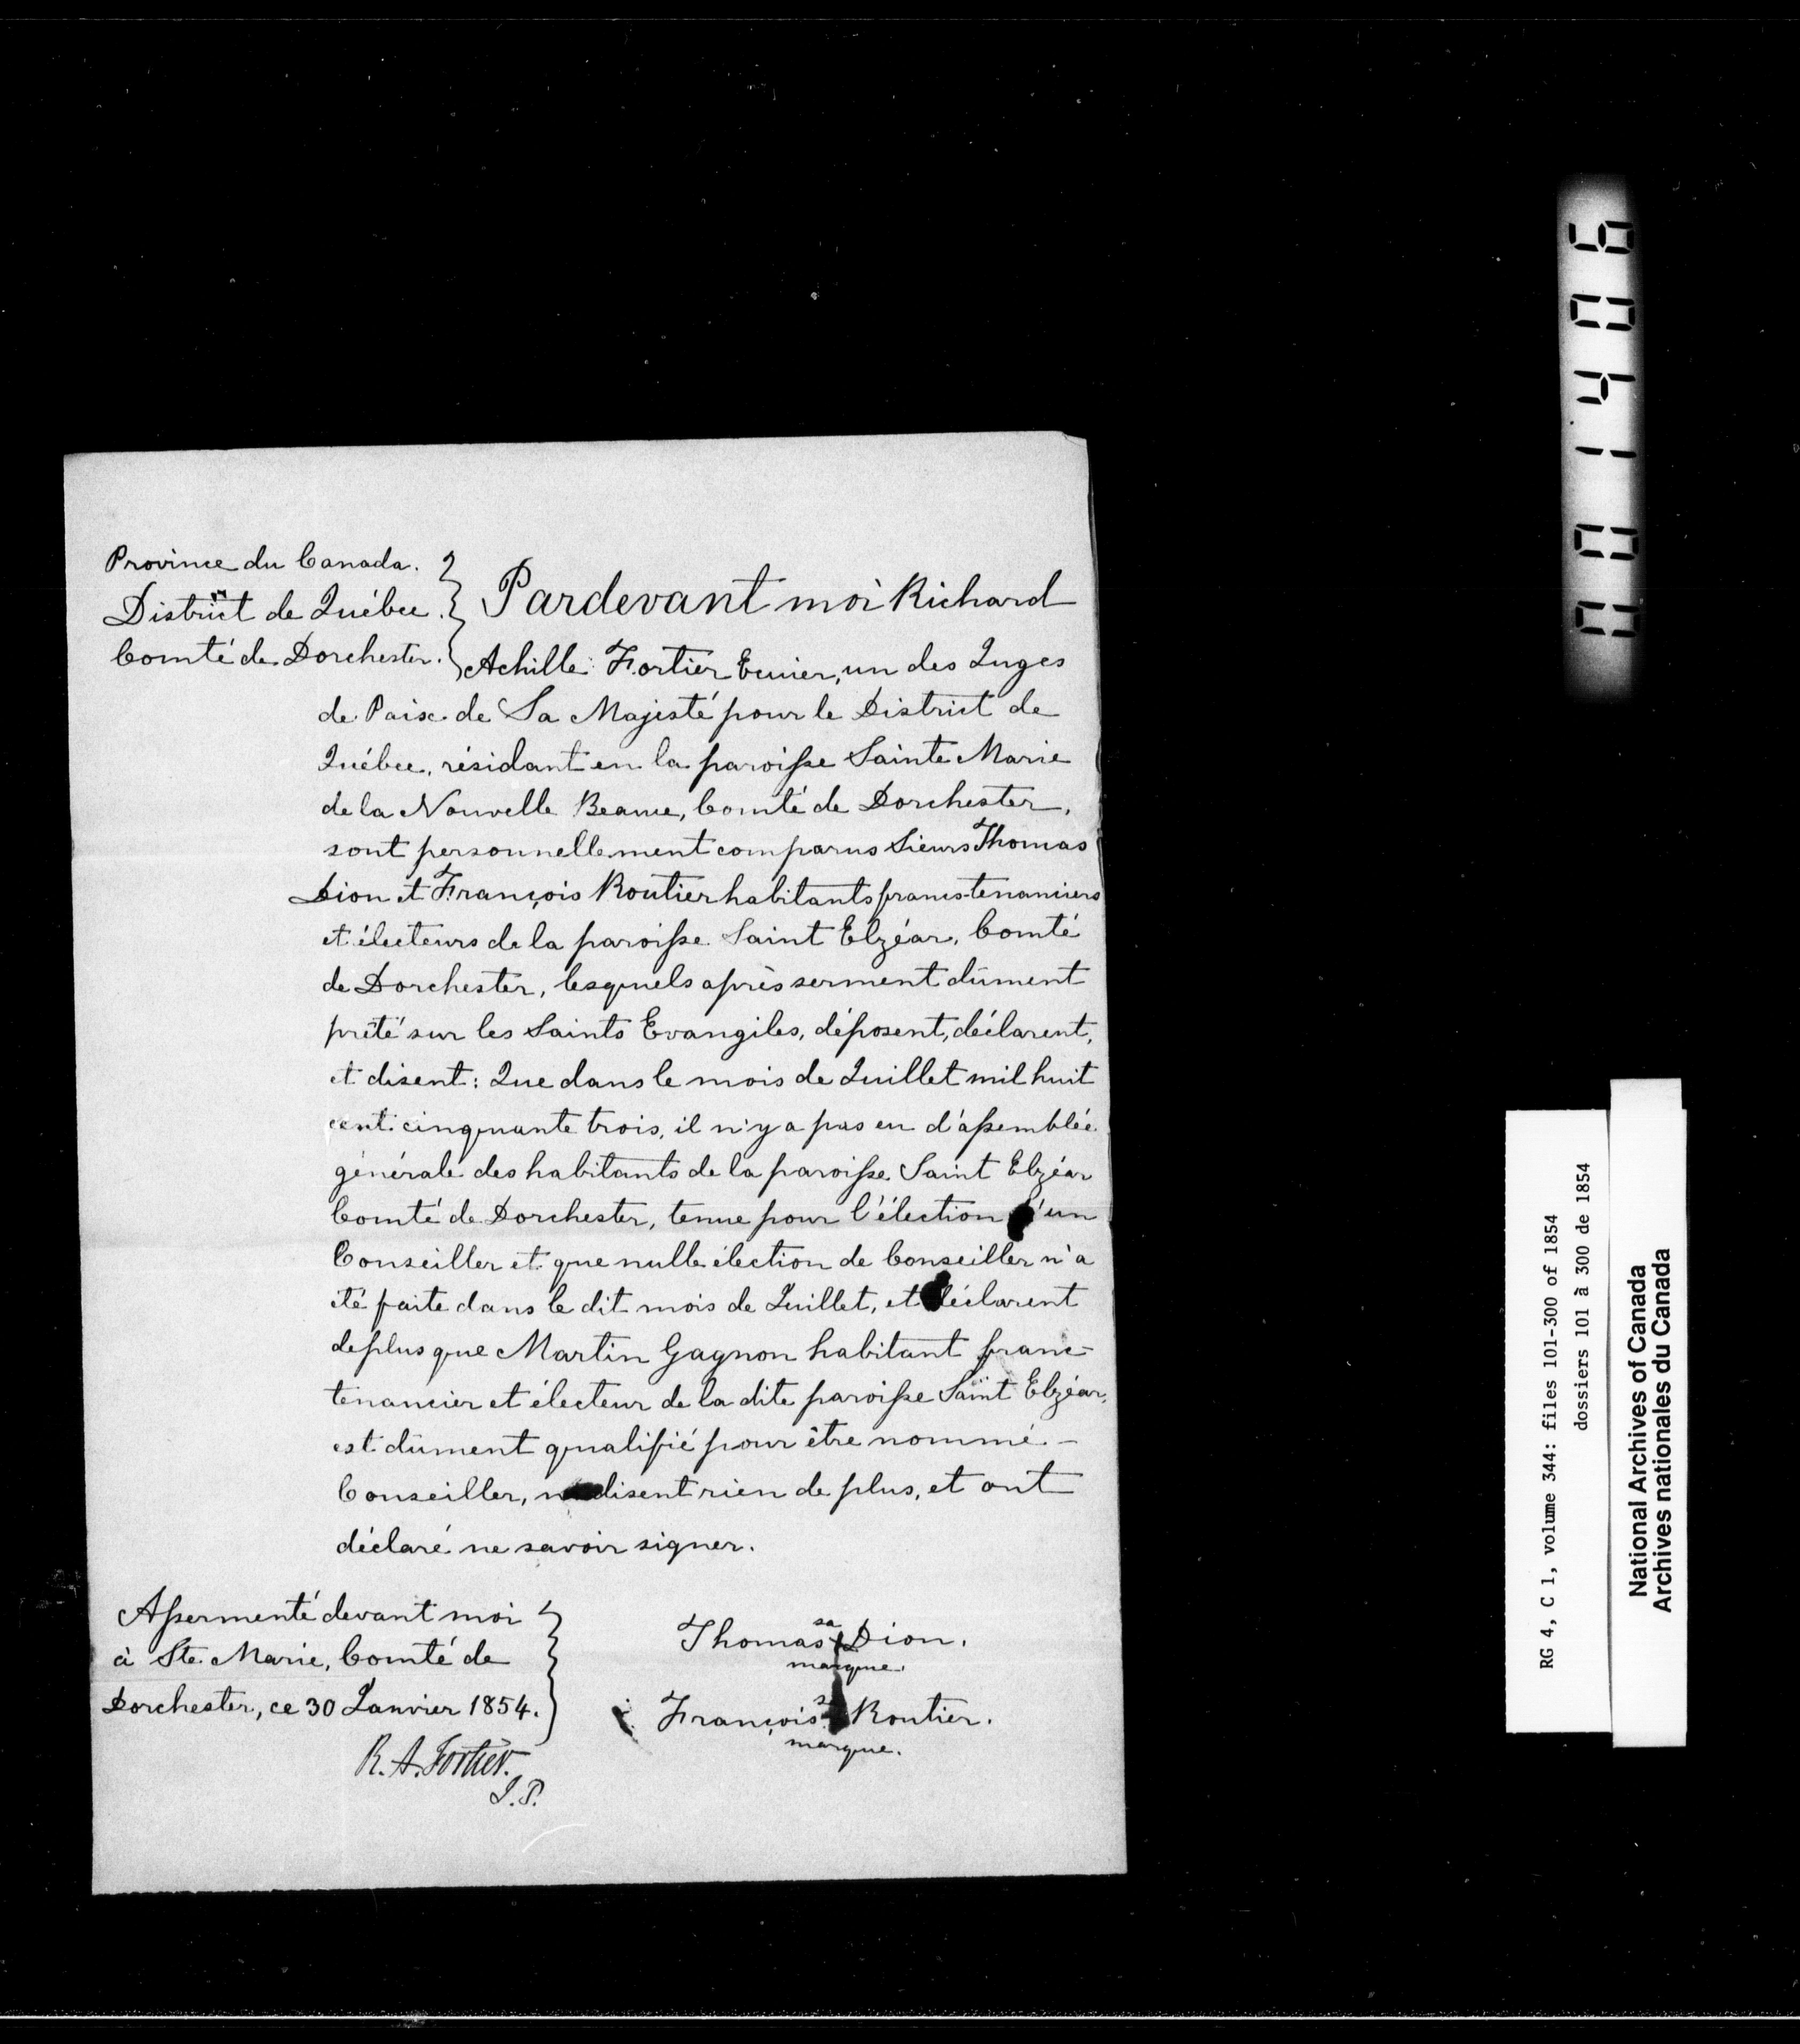 Province du Canada.
District de Québec.
Comté de Dorchester.
Pardevant moi Richard
Achille Fortier Ecuier, un des Juges
de Paix de Sa Majesté pour le District de
Québec, résidant en la paroisse Sainte Marie
de la Nouvelle Beauce, Comté de Dorchester,
sont personnellement comparus Sieurs Thomas
Dion et François Routier habitants francs-tenanciers
et électeurs de la paroisse Saint Elzéar, Comté
de Dorchester, lesquels après serment dûment
prêté sur les Saints Evangiles, déposent, déclarent,
et disent: Que dans le mois de Juillet mil huit
cent cinquante trois, il n'y a pas eu d'assemblée
générale des habitants de la paroisse Saint Elzéar
Comté de Dorchester, tenue pour l'élection d'un
Conseiller et que nulle élection de Conseiller n'a
été faite dans le dit mois de Juillet, et déclarent
de plus que Martin Gagnon habitant franc-
tenancier et électeur de la dite paroisse Saint Elzéar,
est dûment qualifié pour être nommé -
Conseiller, ne disent rien de plus, et ont
déclaré ne savoir signer.
Assermenté devant moi
à Ste. Marie, Comté de
Dorchester, ce 30 Janvier 1854.
R. A. Fortier.
J. P.
sa
Thomas + Dion.
marque.
sa
François + Routier.
marque.
001406
RG 4, C 1, volume 344: files 101-300 of 1854
dossiers 101 à 300 de 1854
National Archives of Canada
Archives nationales du Canada